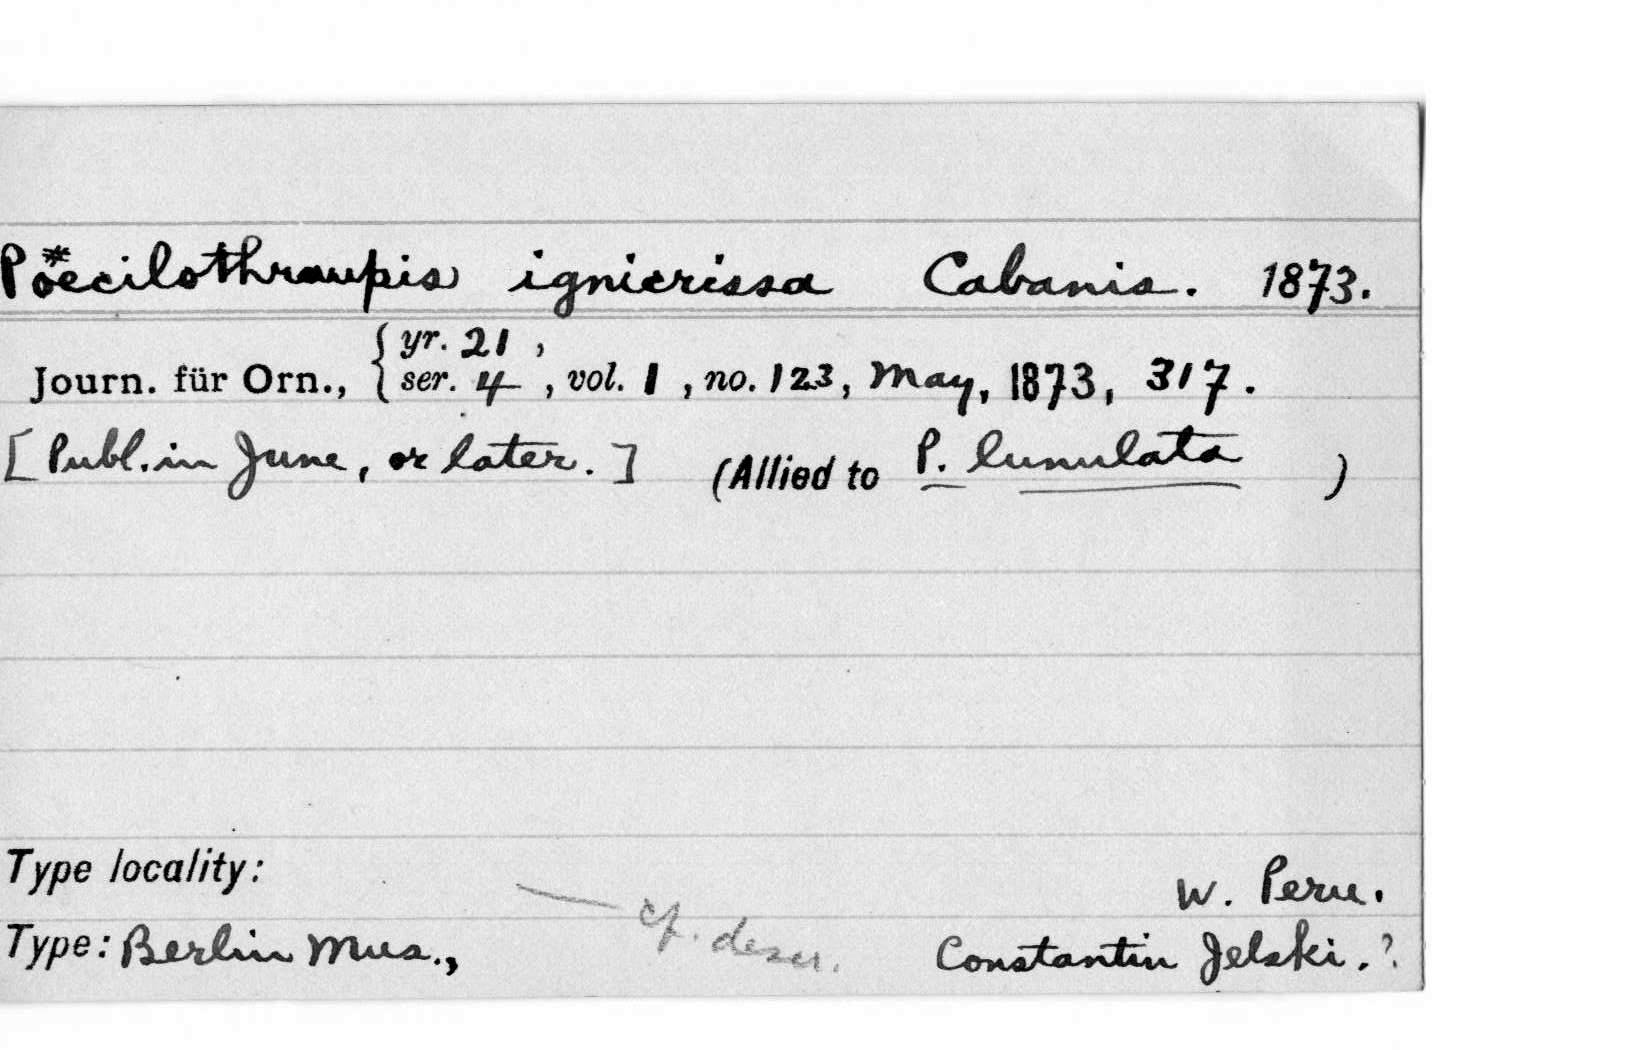 Pöecilothraupis * ignicrissa Cabanis. 1873.
Journ. für Orn., { yr. 21 ,
ser. 4 , vol. 1 , no. 123, May, 1873, 317.
[Publ. in June, or later.] (Allied to P. lunulata )
Type locality: W. Peru.
Type: Berlin Mus., — cf. descr. Constantin Jelski.?